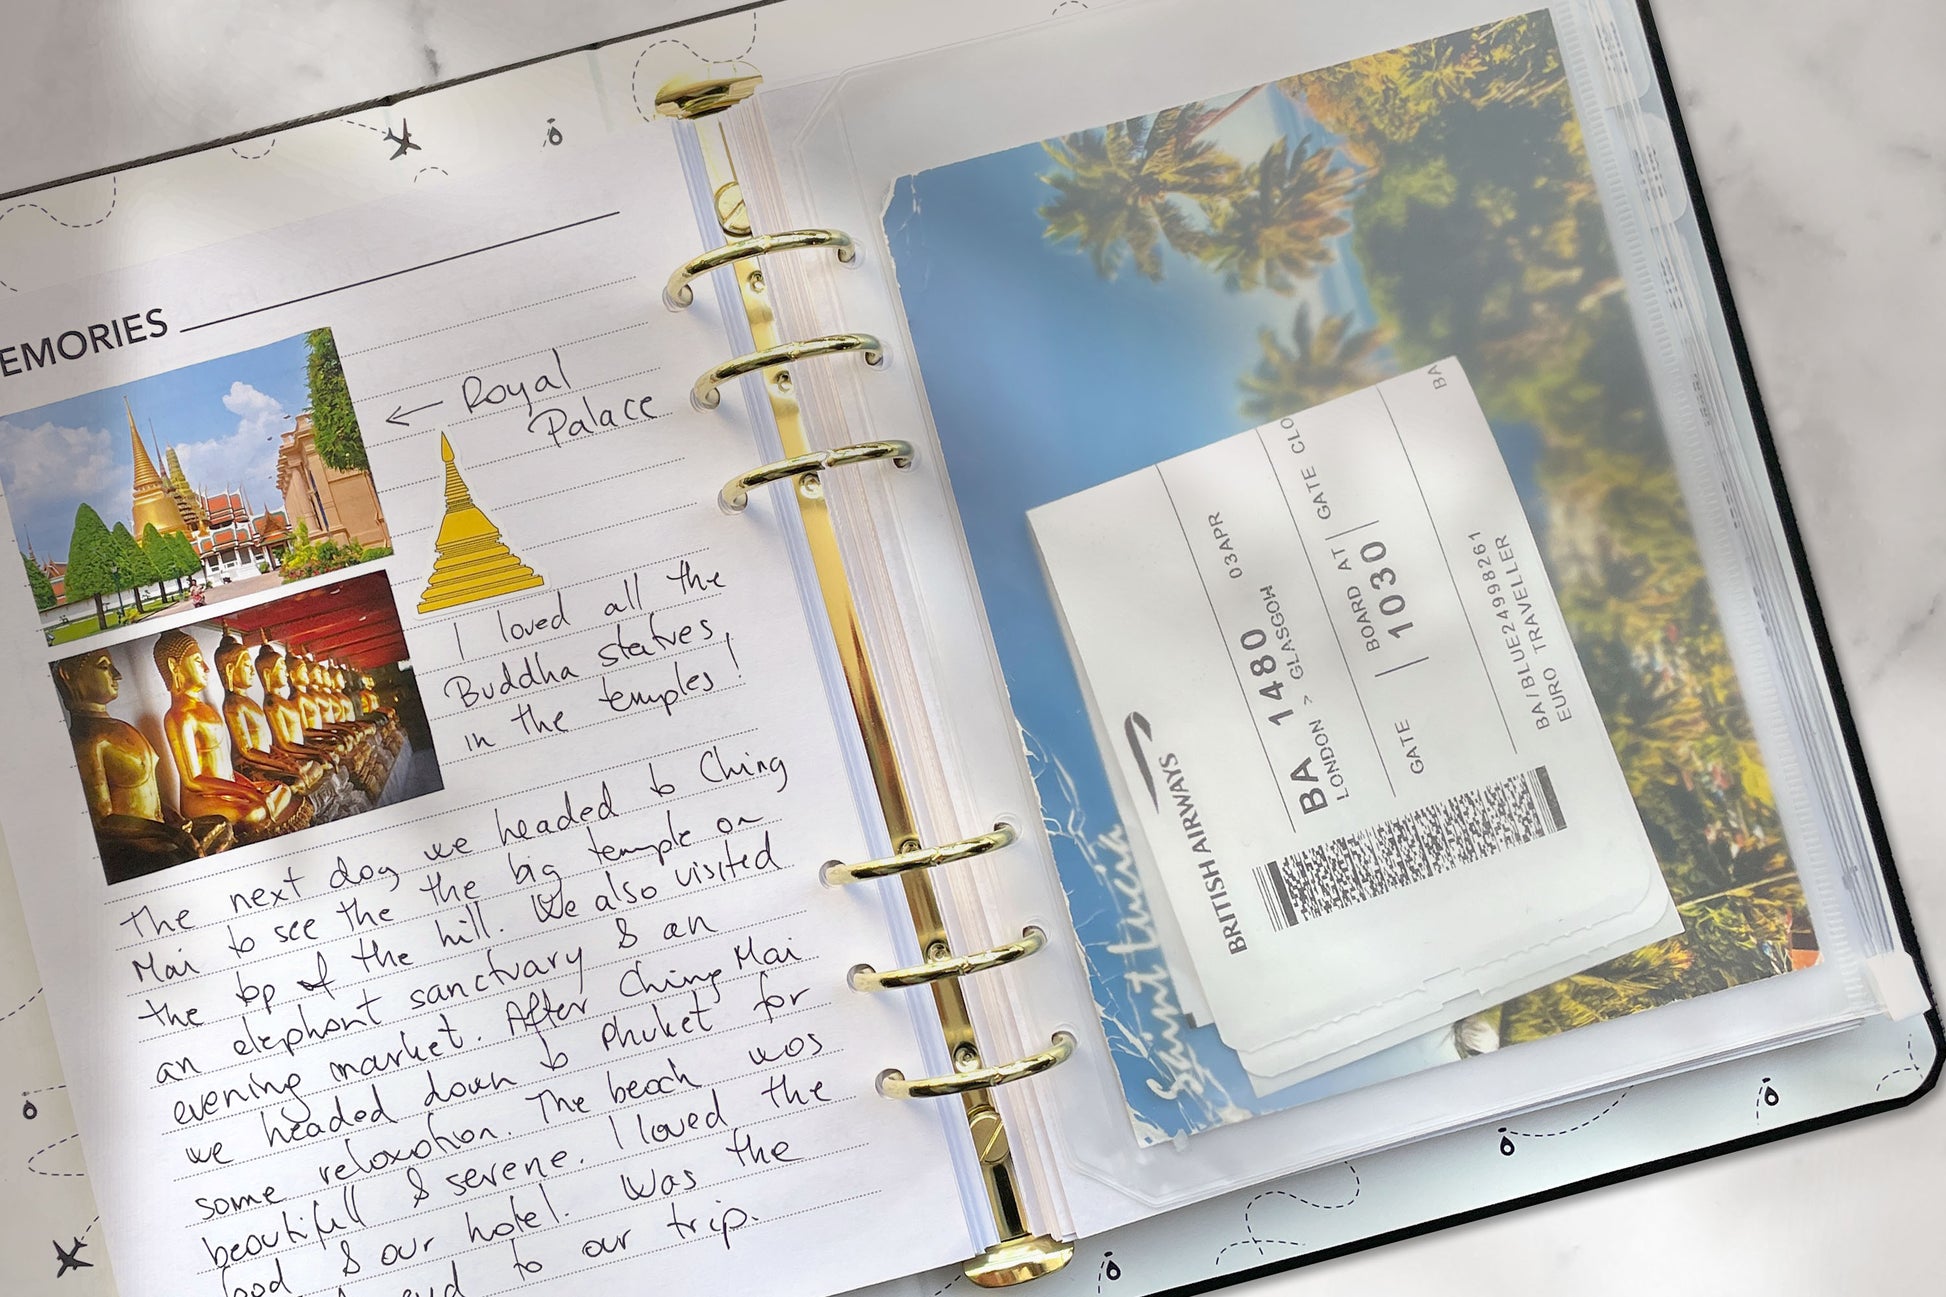 EMORIES
← Royal
Palace
I loved all the
Buddha statues,
in the temples!
The next day we headed to Ching
Mai to see the the big temple on
the top of the hill. We also visited
an elephant sanctuary & an
evening market. After Ching Mai
we headed down to Phuket for
some relaxation. The beach was
beautifull & serene. I loved the
food & our hotel. Was the
end to our trip.
Saint Lucia
BRITISH AIRWAYS
BA 1480 03APR
LONDON > GLASGOW
GATE | BOARD AT | GATE CLO
| 1030 |
BA/BLUE24998261
EURO TRAVELLER
BA